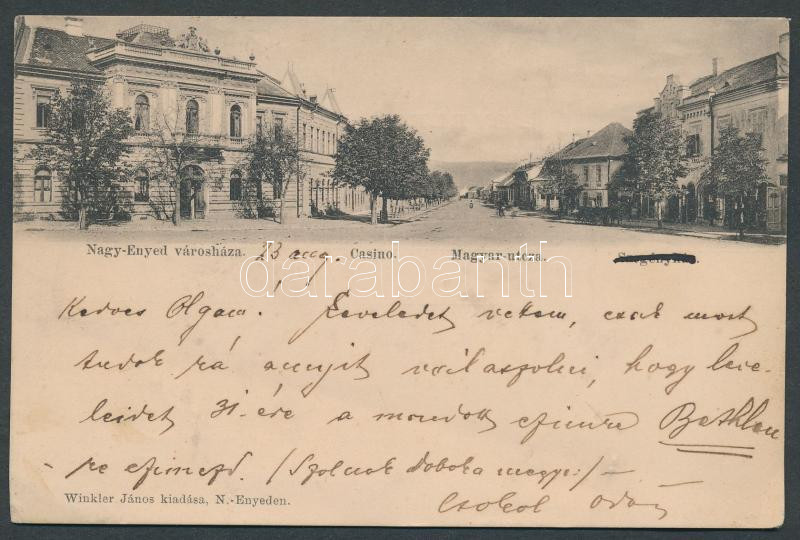 Nagy-Enyed városháza. 23 aug. Casino. Magyar-utcza.
darabanth
Kedves Olgám! Leveledet vettem, csak most
tudok rá annyit válaszolni, hogy leve-
leidet 31-ére a mondott czímre Bethlen
-re czímezd. (Szolnok Doboka megye)—
Winkler János kiadása, N.-Enyeden.
Csókol